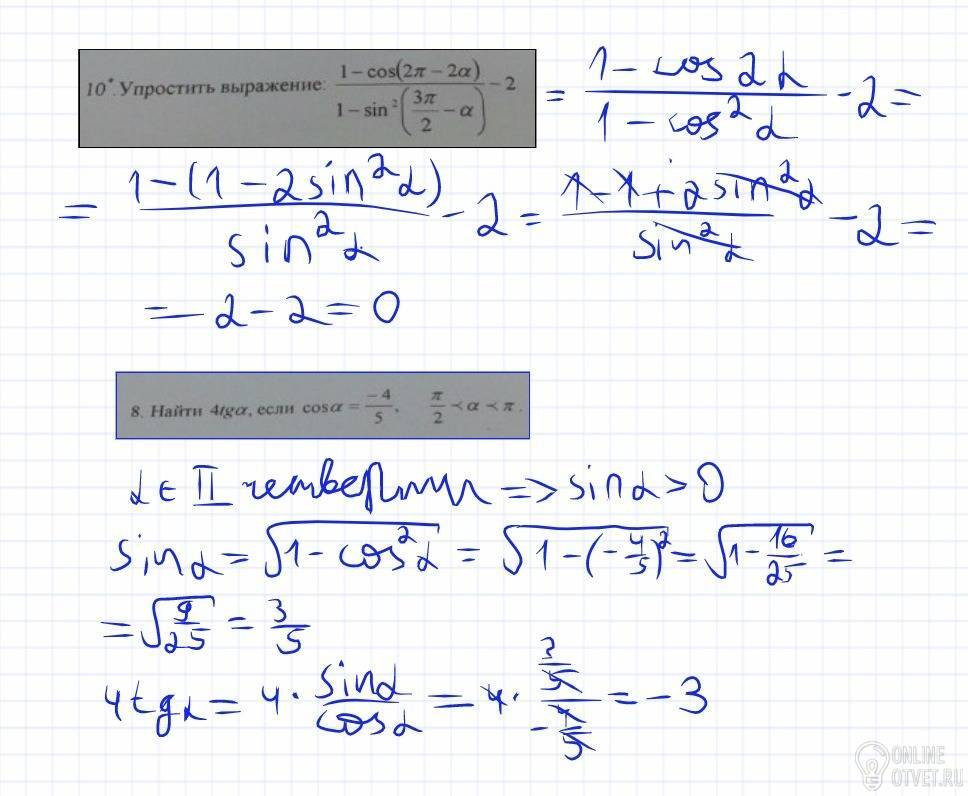 10*. Упростить выражение: (1 − cos(2π − 2α))/(1 − sin²(3π/2 − α)) − 2 = (1 − cos2α)/(1 − cos²α) − 2 =
= (1 − (1 − 2sin²α))/(sin²α) − 2 = (1 − 1 + 2sin²α)/(sin²α) − 2 =
= 2 − 2 = 0
8. Найти 4tgα, если cosα = −4/5, π/2 < α < π.
α ∈ II четверти => sinα > 0
sinα = √(1 − cos²α) = √(1 − (−4/5)²) = √(1 − 16/25) =
= √(9/25) = 3/5
4tgα = 4 · sinα/cosα = 4 · (3/5)/(−4/5) = −3
ONLINE
OTVET.RU